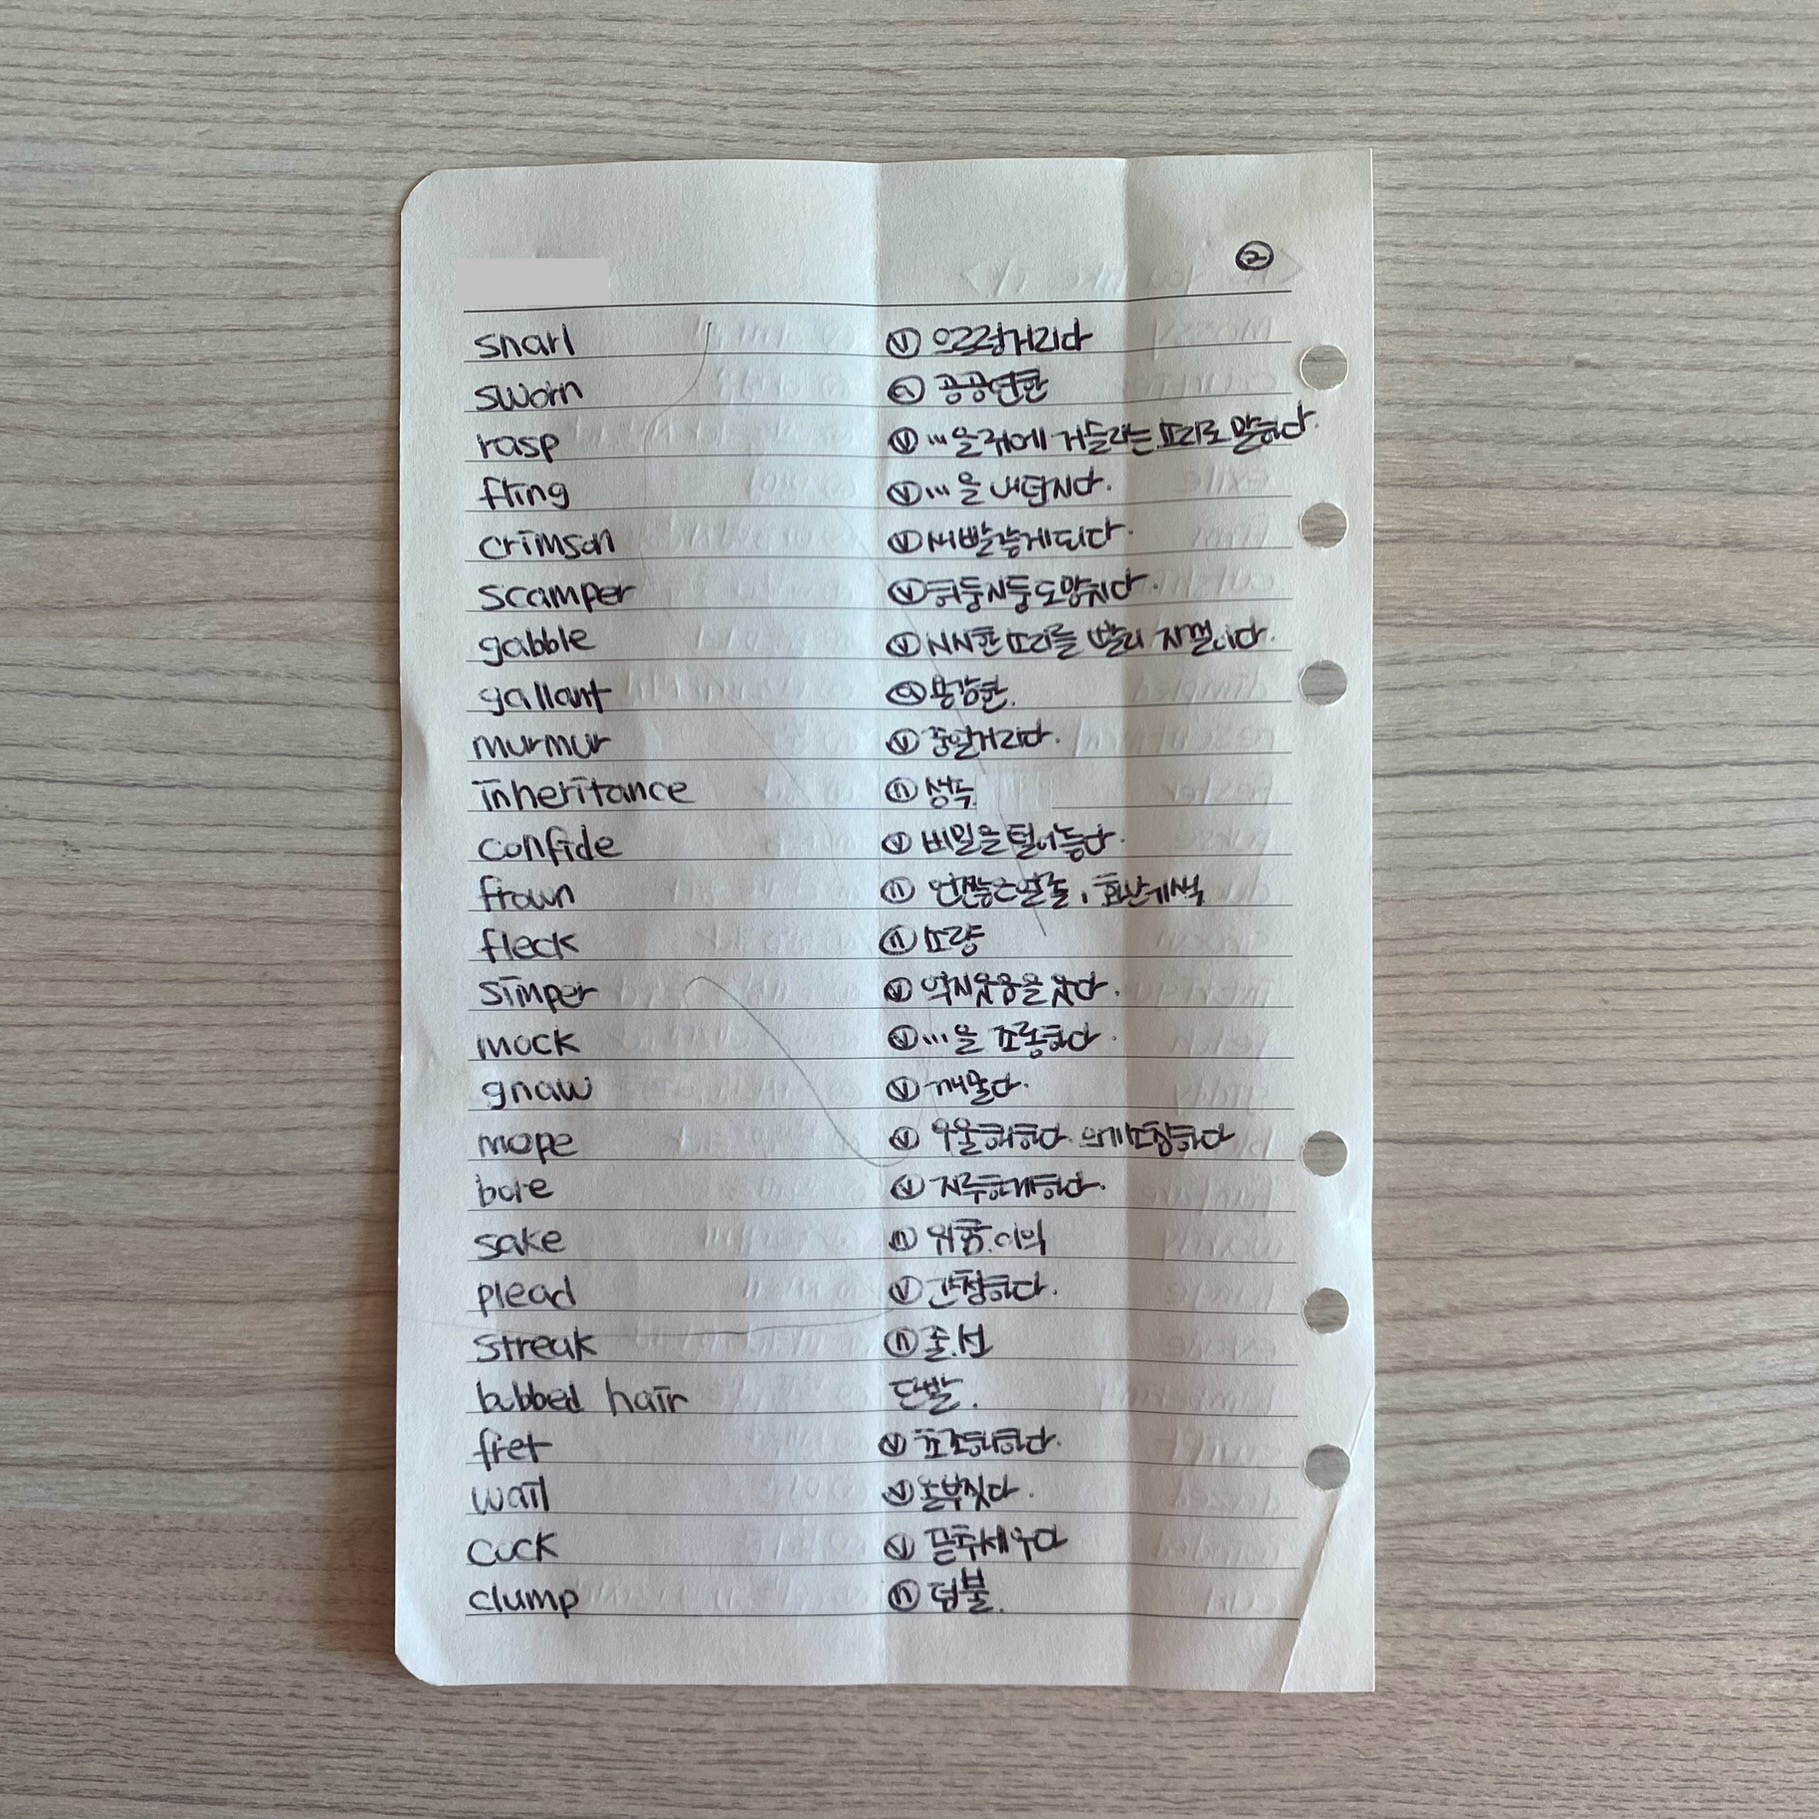 ②
snarl ⓥ 으르렁거리다
sworn ⓐ 공공연한
rasp ⓥ …을 귀에 거들리는 소리로 말하다.
fling ⓥ …을 내던지다.
crimson ⓥ 새빨갛게되다.
scamper ⓥ 허둥지둥 도망치다.
gabble ⓥ 시시한 소리를 빨리 지껄이다.
gallant ⓐ 용감한.
murmur ⓥ 중얼거리다.
inheritance ⓝ 상속
confide ⓥ 비밀을 털어놓다.
frown ⓝ 언짢은얼굴, 화난기색
fleck ⓝ 소량
simper ⓥ 억지웃음을 웃다.
mock ⓥ …을 조롱하다.
gnaw ⓥ 깨물다.
mope ⓥ 우울해하다. 의기소침하다
bore ⓥ 지루하게하다.
sake ⓝ 위함. 이익
plead ⓥ 간청하다.
streak ⓝ 줄.선
bobbed hair 단발.
fret ⓥ 초조해하다.
wail ⓥ 울부짖다.
cock ⓥ 곧추세우다
clump ⓝ 덤불.